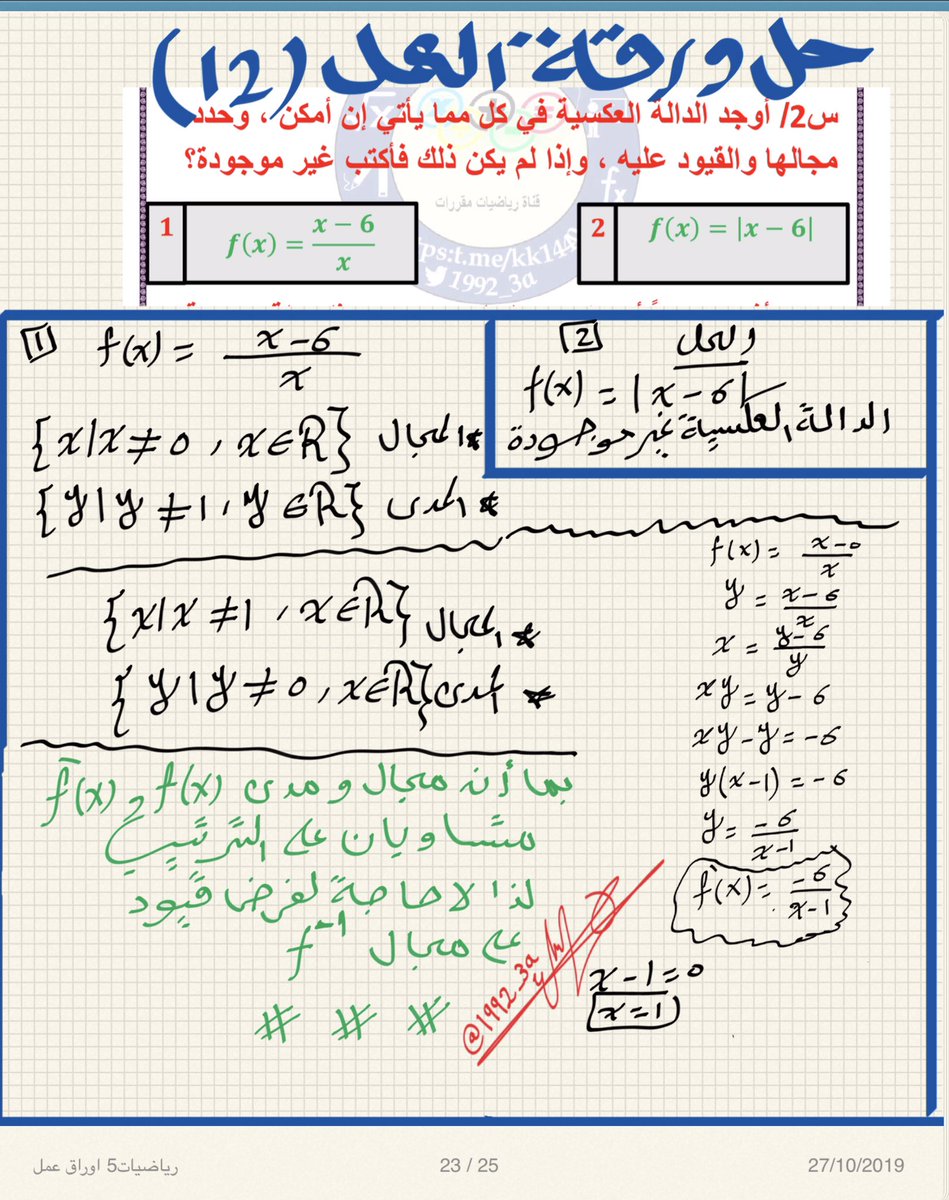 حل ورقة العمل (12)
س2/ أوجد الدالة العكسية في كل مما يأتي إن أمكن ، وحدد
مجالها والقيود عليه ، وإذا لم يكن ذلك فأكتب غير موجودة؟
قناة رياضيات مقررات
1 f(x) = \frac{x − 6}{x}
2 f(x) = |x − 6|
1992_3a
[1] f(x) = \frac{x-6}{x}
* المجال {x|x≠0 , x∈R}
* المدى {y|y≠1, y∈R}
[2] والحل
f(x) = |x-6|
الدالة العكسية غير موجودة
* المجال {x|x≠1 , x∈R}
* المدى {y|y≠0, x∈R}
بما أن مجال و مدى f(x) و f̄(x)
متساويان على الترتيب
لذا لا حاجة لفرض قيود
على مجال f⁻¹
# # #
f(x) = \frac{x-6}{x}
y = \frac{x-6}{x}
x = \frac{y-6}{y}
xy = y-6
xy-y = -6
y(x-1) = -6
y = \frac{-6}{x-1}
f̄(x) = \frac{-6}{x-1}
x-1=0
x=1
@1992_3a
رياضيات5 اوراق عمل
23 / 25
27/10/2019